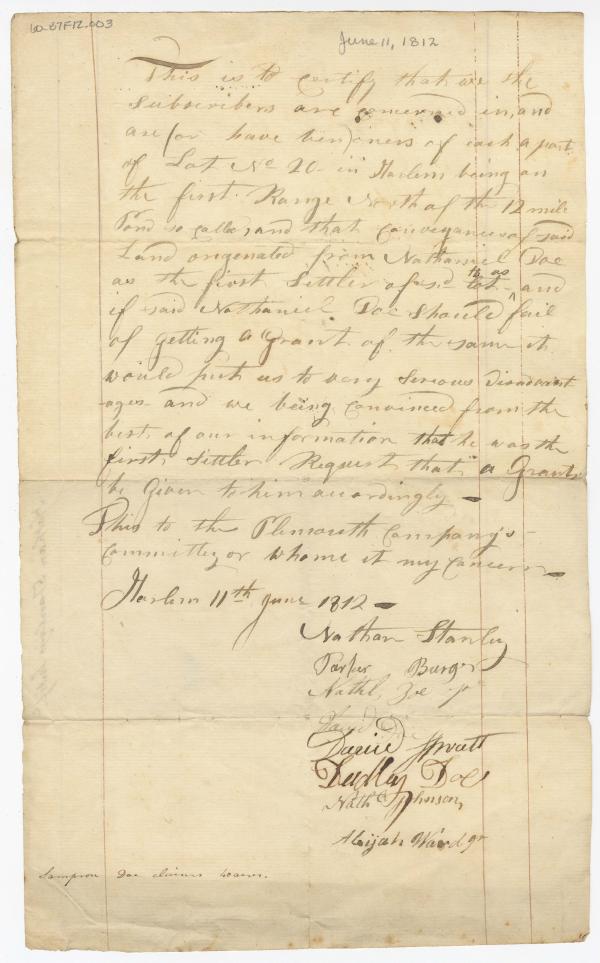 60-27F12.003
June 11, 1812
This is to certify that we the
Subscribers are concerned in, and
are (or have ben) oners of each a part
of Lot No 20 in Harlem being on
the first Range North of the 12 mile
Pond so called, and that conveyances of said
Land origenated from Nathaniel Doe
as the first Settler of sd lot to as and
if said Nathaniel Doe Should fail
of getting a Grant of the same it
would put us to very Serious disadvant
ages and we being convinced from the
best of our information that he was the
first Settler Request that a Grant
be Given to him accordingly
This to the Plemouth Company's
Committey or whome it my concern
Harlem 11th June 1812
Nathan Stanley
Burger
Nathl, Doe jr
Doe
Dudley Doe
Nathl Johnson
Abijah Ward Jr
Sampson Doe claims